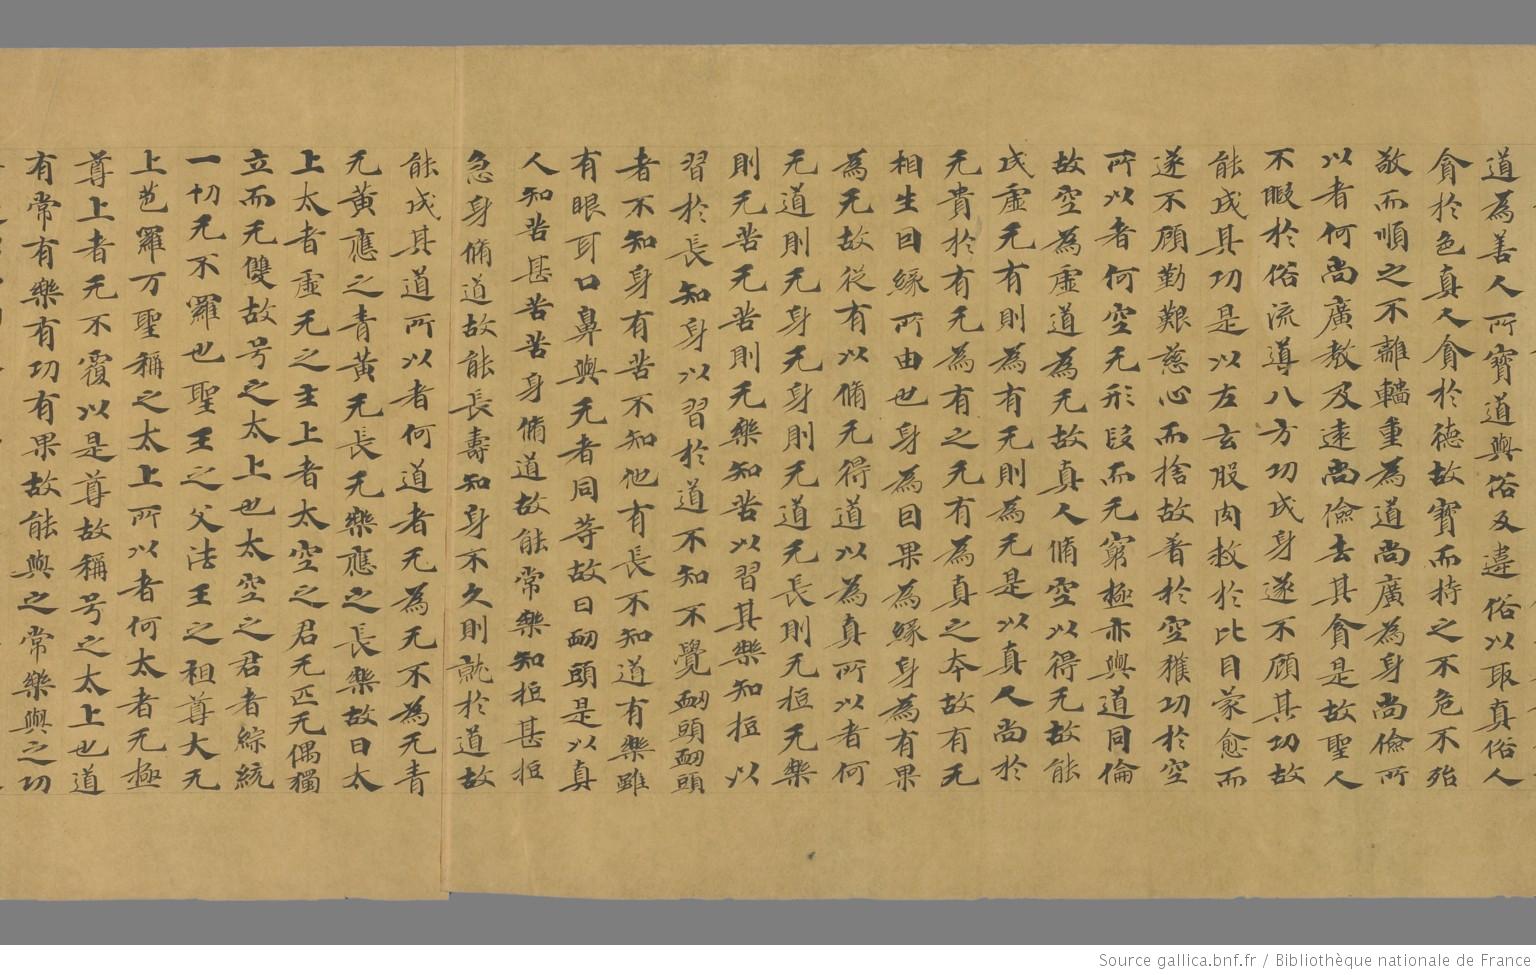 道為善人所寶道與俗及違俗以取真俗人
貪於色真人貪於德故寶而持之不危不殆
敬而順之不離輜重為道尚廣為身尚儉所
以者何尚廣教及遠尚儉去其貪是故聖人
不暇於俗流導八方功成身遂不顧其功故
能成其功是以左玄股肉救於比目蒙愈而
遂不顧勤艱慈心而捨故著於空獲功於空
所以者何空无形段而无窮極亦與道同倫
故空為虛道為无故真人脩空以得无故能
成虛无有則為有无則為无是以真人尚於
无貴於有无為有之无有為真之本故有无
相生因緣所由也身為因果為緣身為有果
為无故從有以脩无得道以為真所以者何
无道則无身无身則无道无長則无短无樂
則无苦无苦則无樂知苦以習其樂知短以
習於長知身以習於道不知不覺𠚫頭𠚫頭
者不知身有苦不知他有長不知道有樂雖
有眼耳口鼻與无者同等故曰𠚫頭是以真
人知苦甚苦苦身脩道故能常樂知短甚短
急身脩道故能長壽知身不久則就於道故
能成其道所以者何道者无為无不為无青
无黃應之青黃无長无樂應之長樂故曰太
上太者虛无之主上者太空之君无匹无偶獨
立而无雙故号之太上也太空之君者綜統
一切无不羅也聖王之父法王之祖尊大无
上苞羅万聖稱之太上所以者何太者无極
尊上者无不覆以是尊故稱号之太上也道
有常有樂有功有果故能與之常樂與之功
Source gallica.bnf.fr / Bibliothèque nationale de France